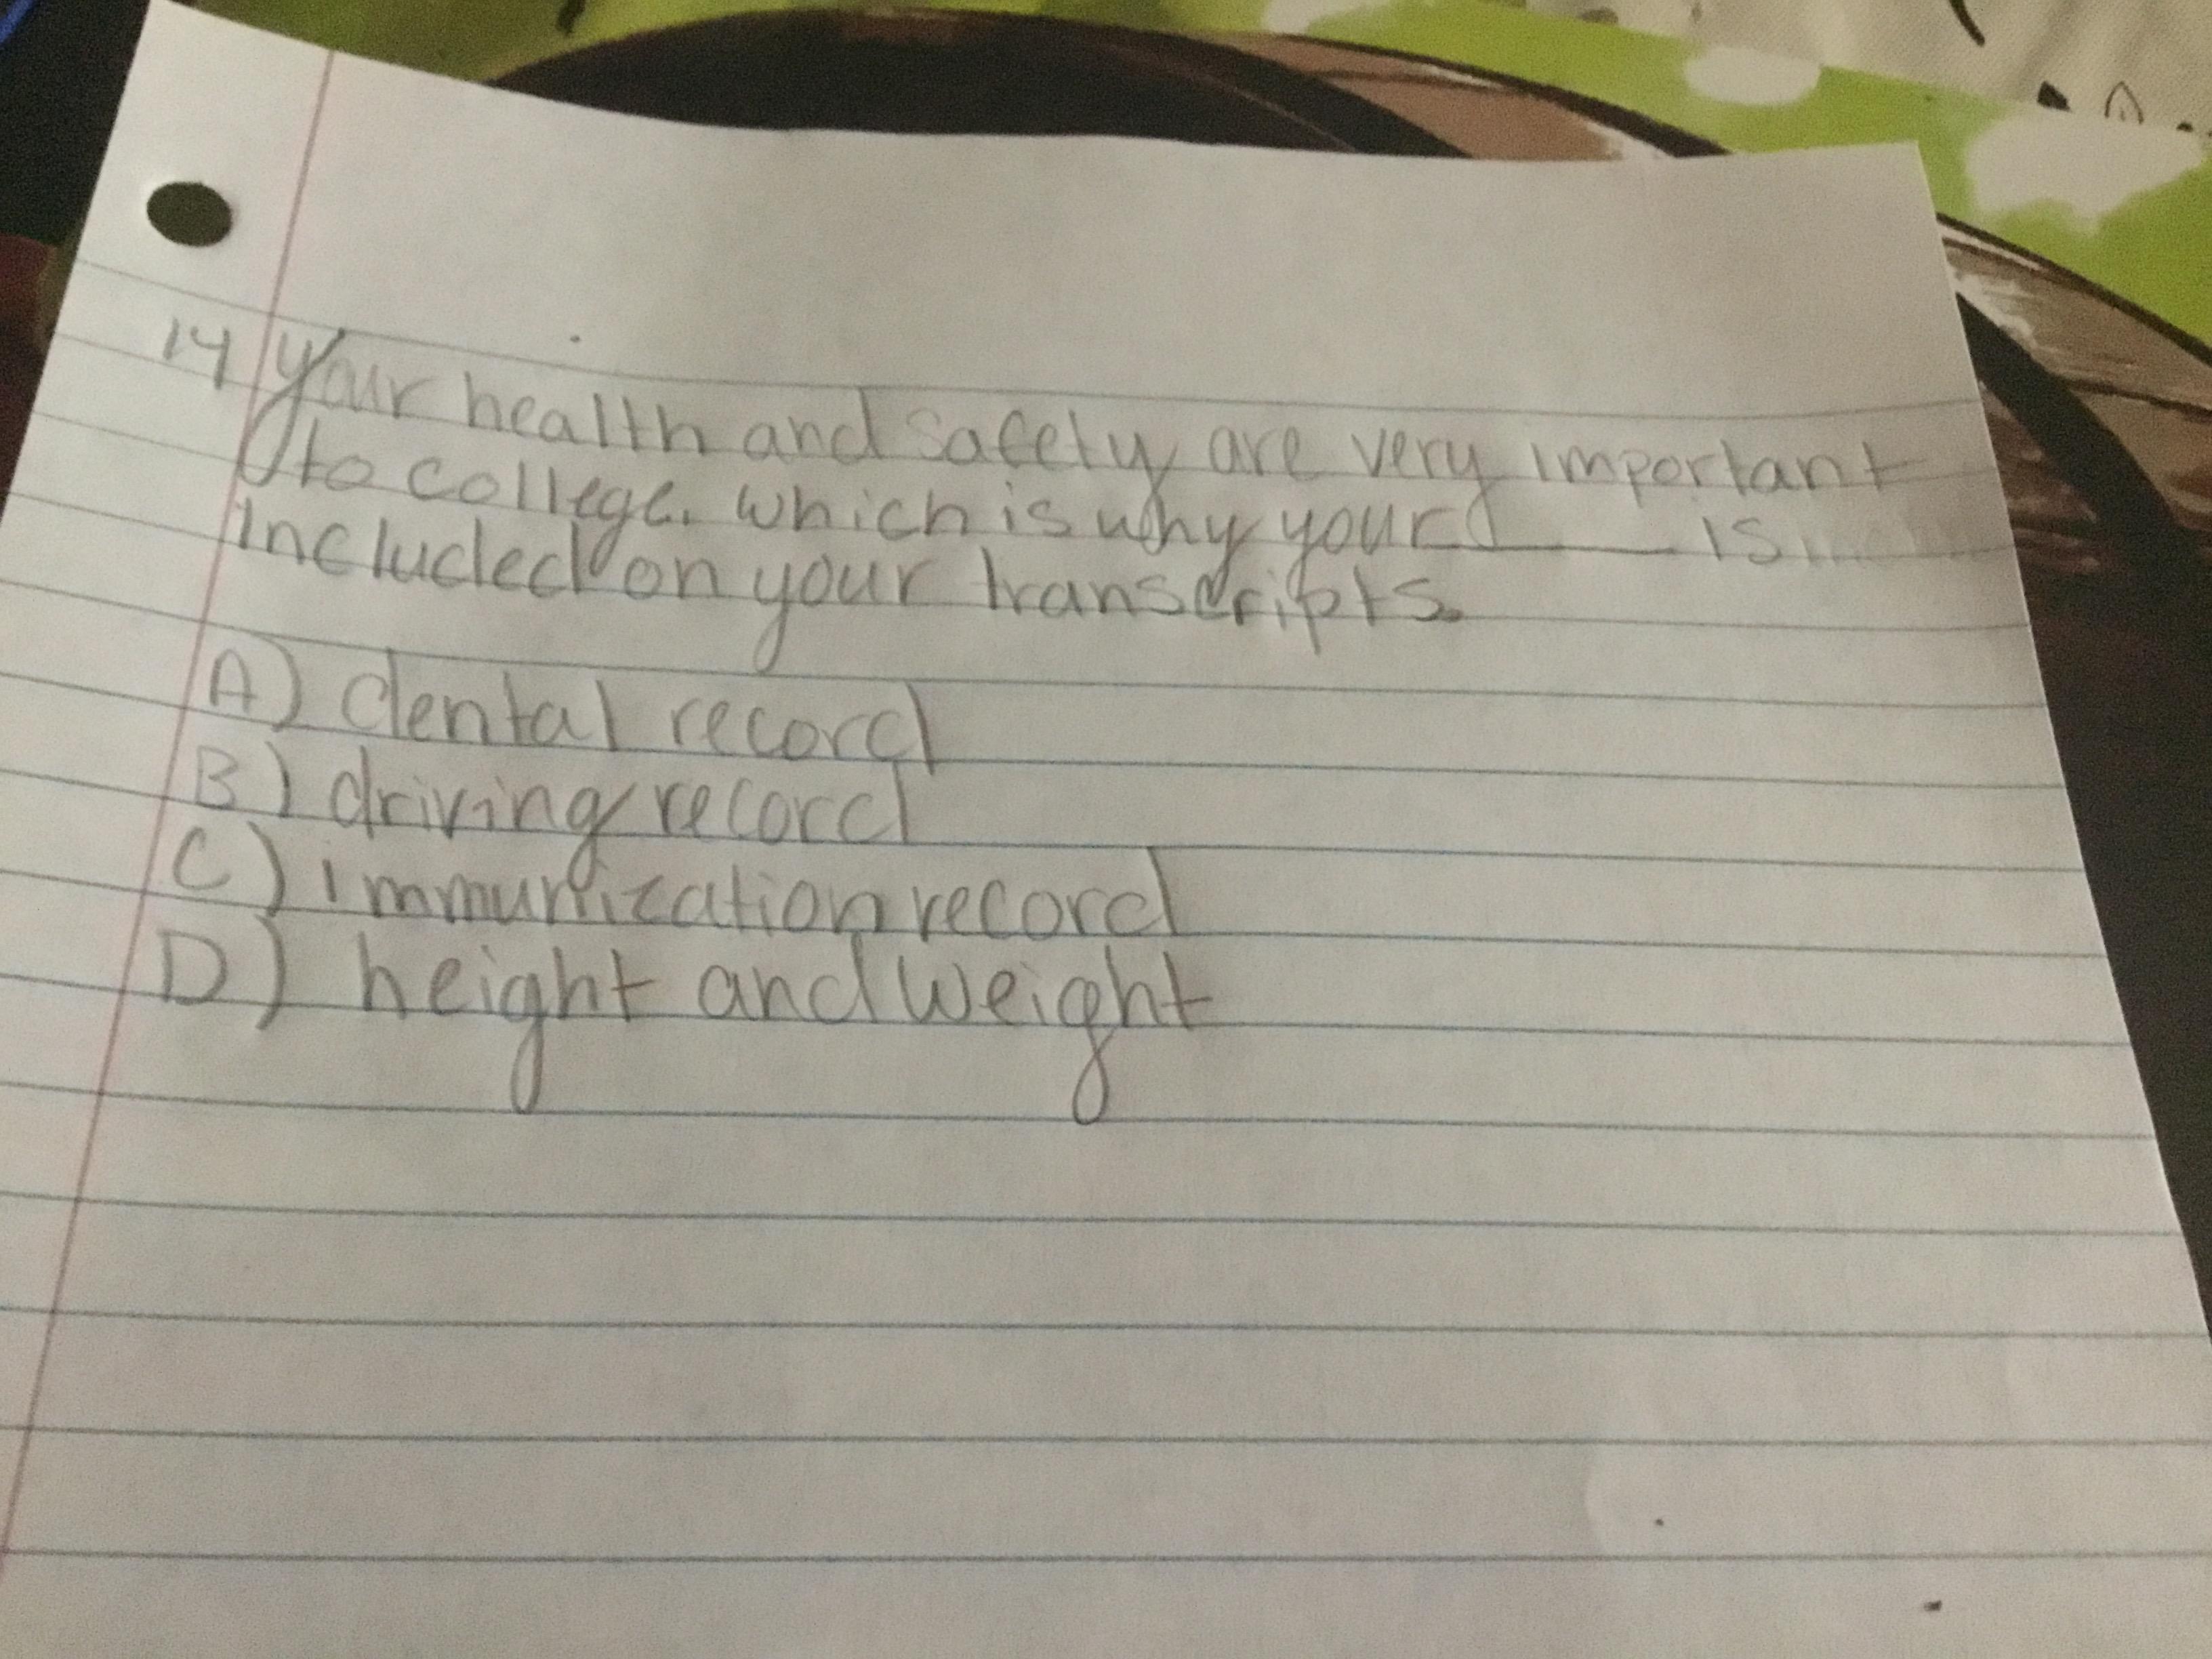 14 Your health and safety are very important
to college. which is why your ____ is
included on your transcripts.
A) dental record
B) driving record
C) immunization record
D) height and weight